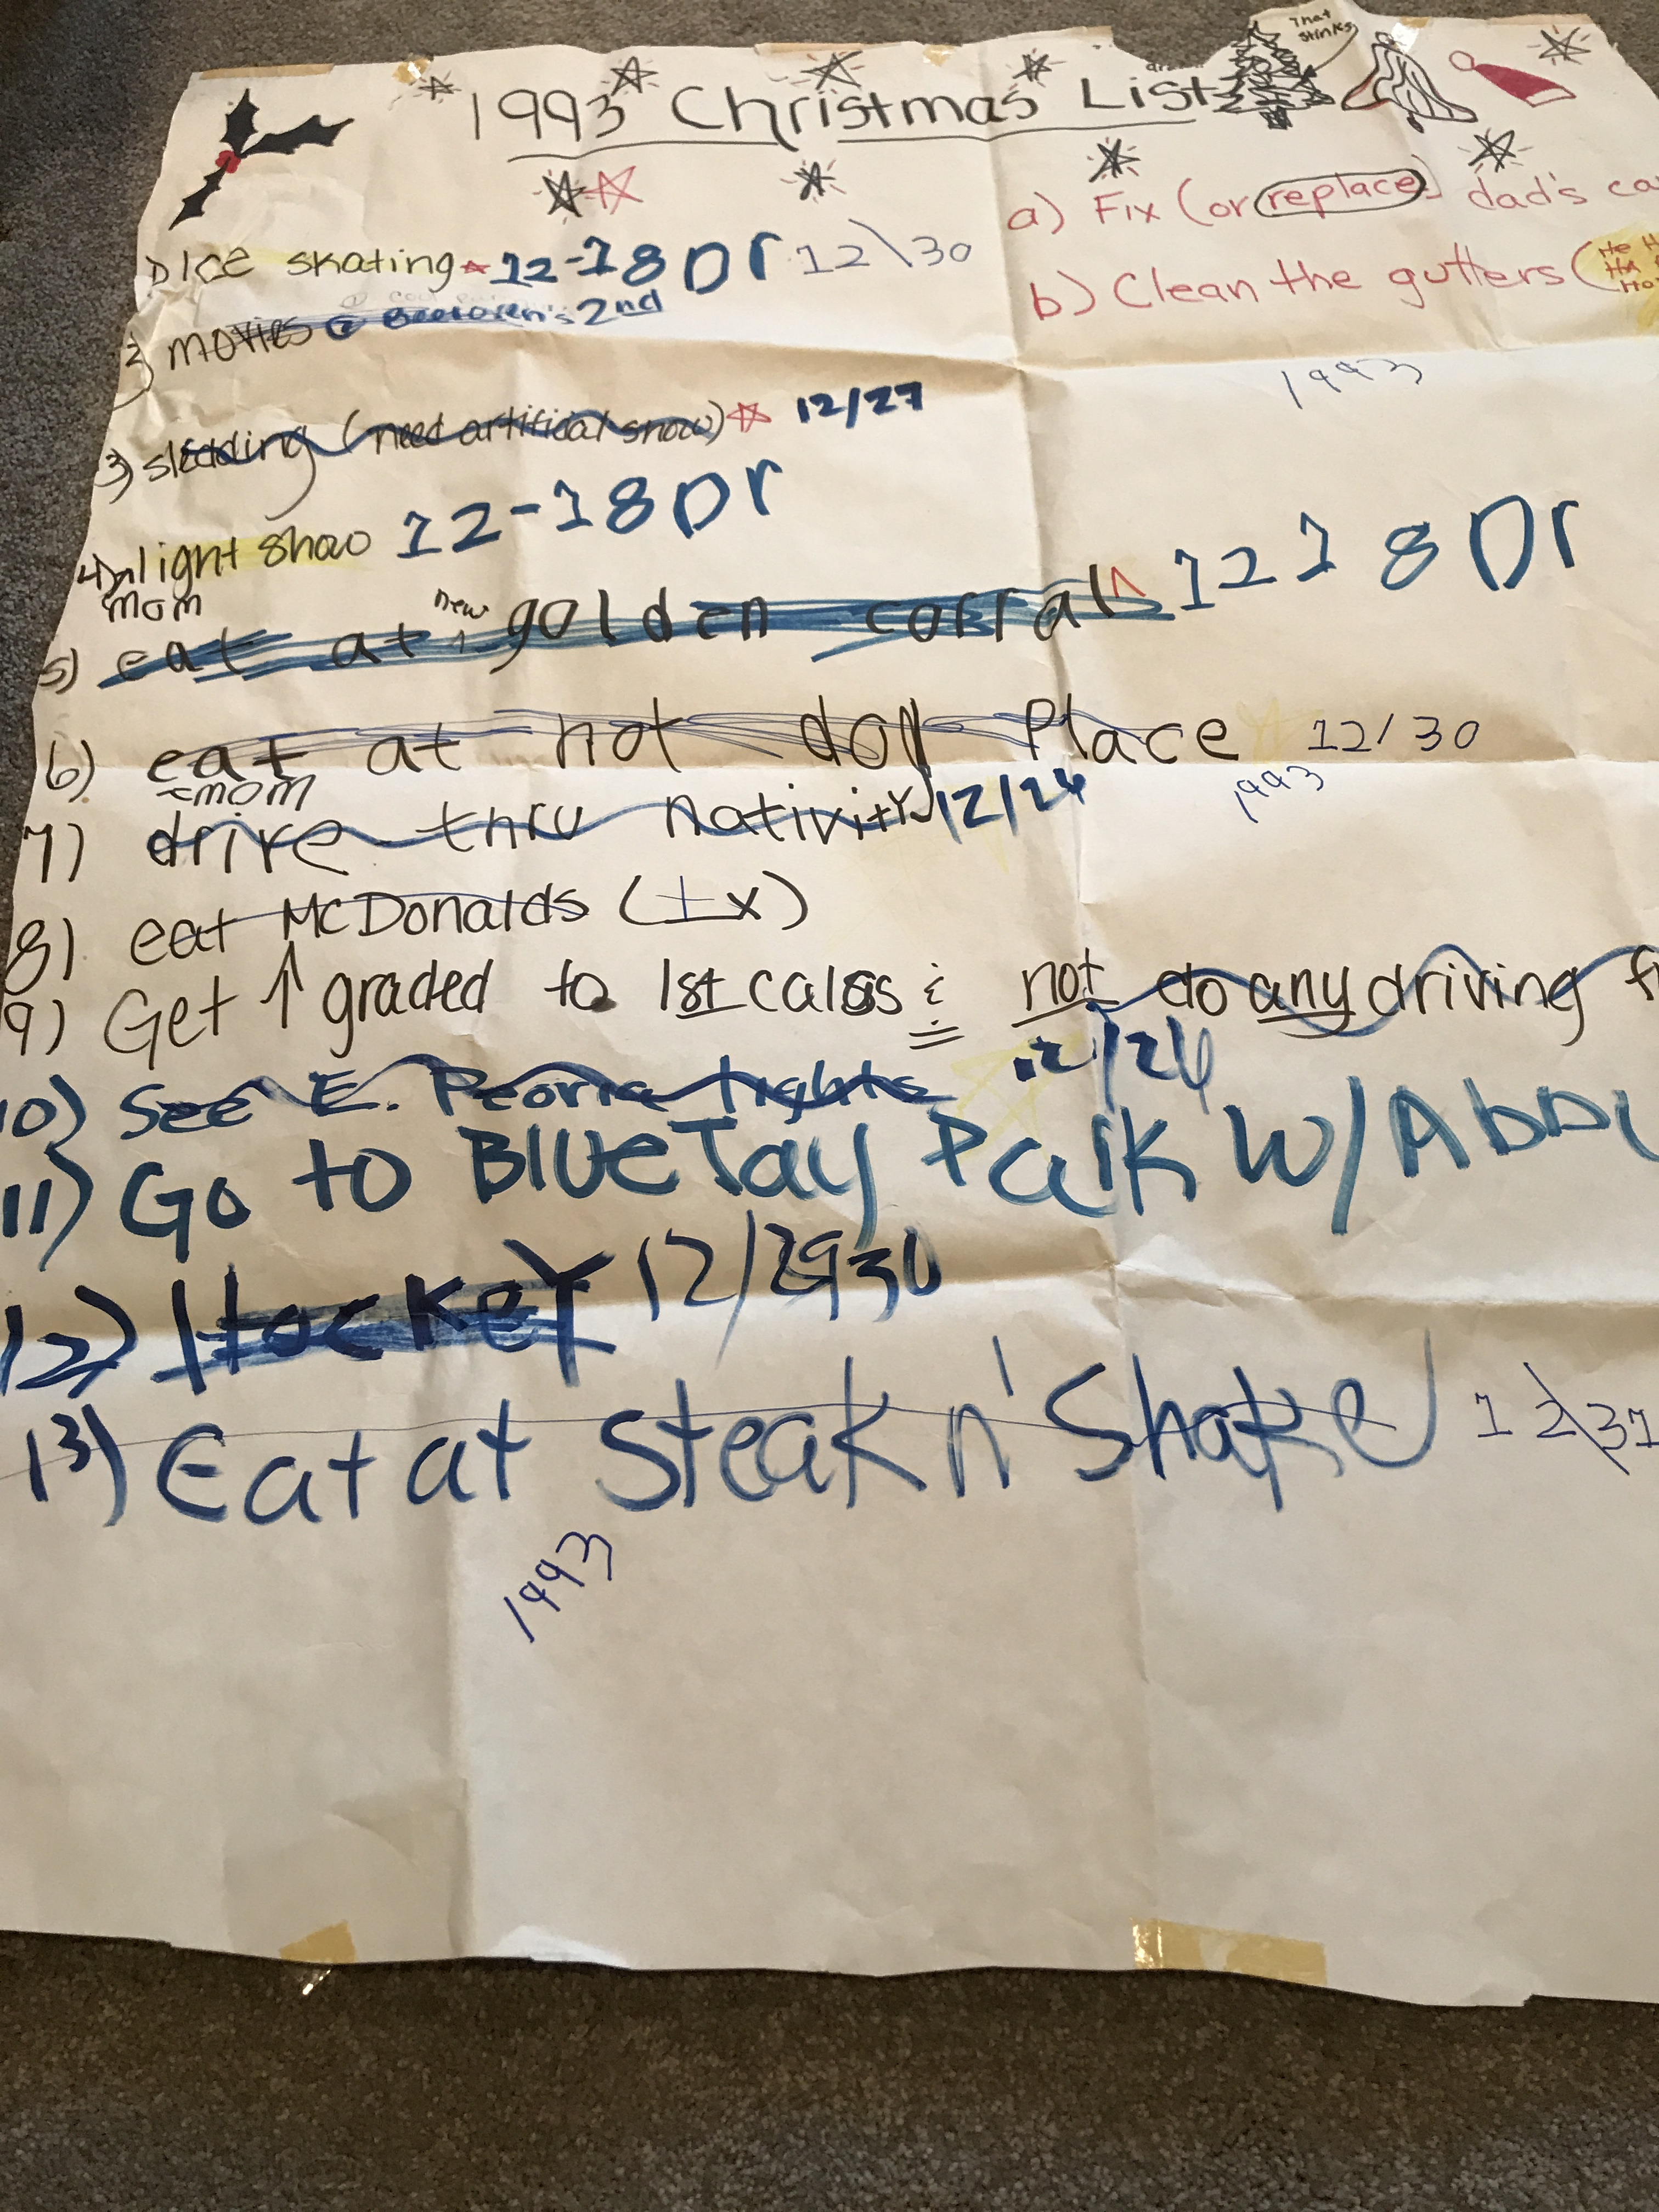 That
stinks
1993 Christmas List
a) Fix (or replace) dad's
1) Ice skating 12-18 Dr 12\30
b) Clean the gutters (He
Ha
Ho
2) movies @ Beethoven's 2nd
1993
3) sledding (need artifical snow) 12/27
4) light show 12-18 Dr
mom
5) eat at new golden corral 12 18 Dr
6) eat at hot dog Place 12/30
mom
1993
7) drive thru nativity 12/26
8) eat McDonalds (1x)
9) Get ↑graded to 1st calss & not do any driving
10) See E. Peoria lights 12/26
11) Go to Blue Jay Park w/
12) Hockey 12/29 30
13) Eat at Steak n' Shake 12\31
1993